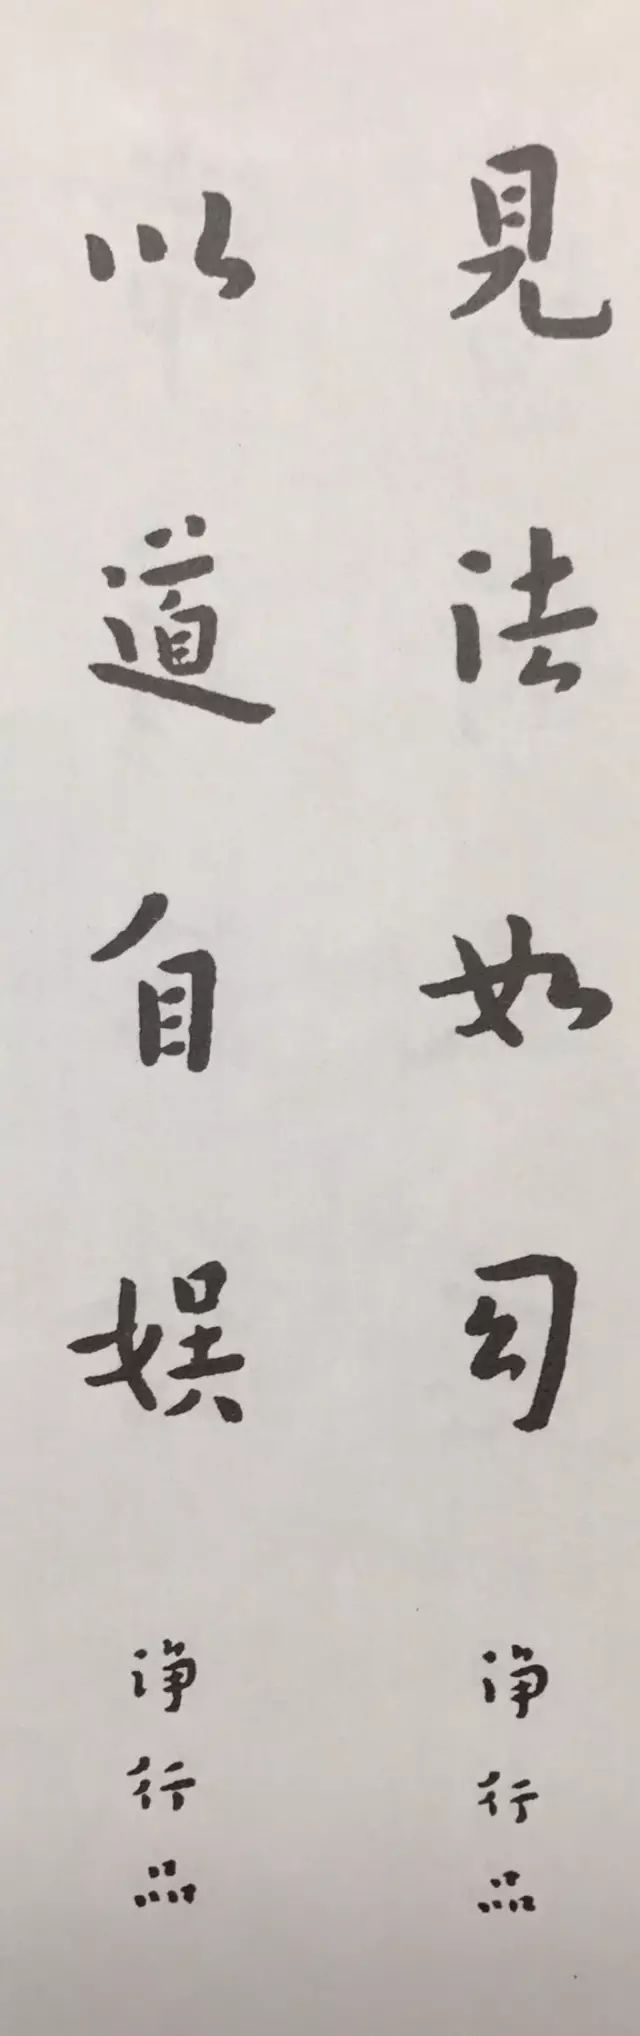 見法如幻
淨行品
以道自娛
淨行品